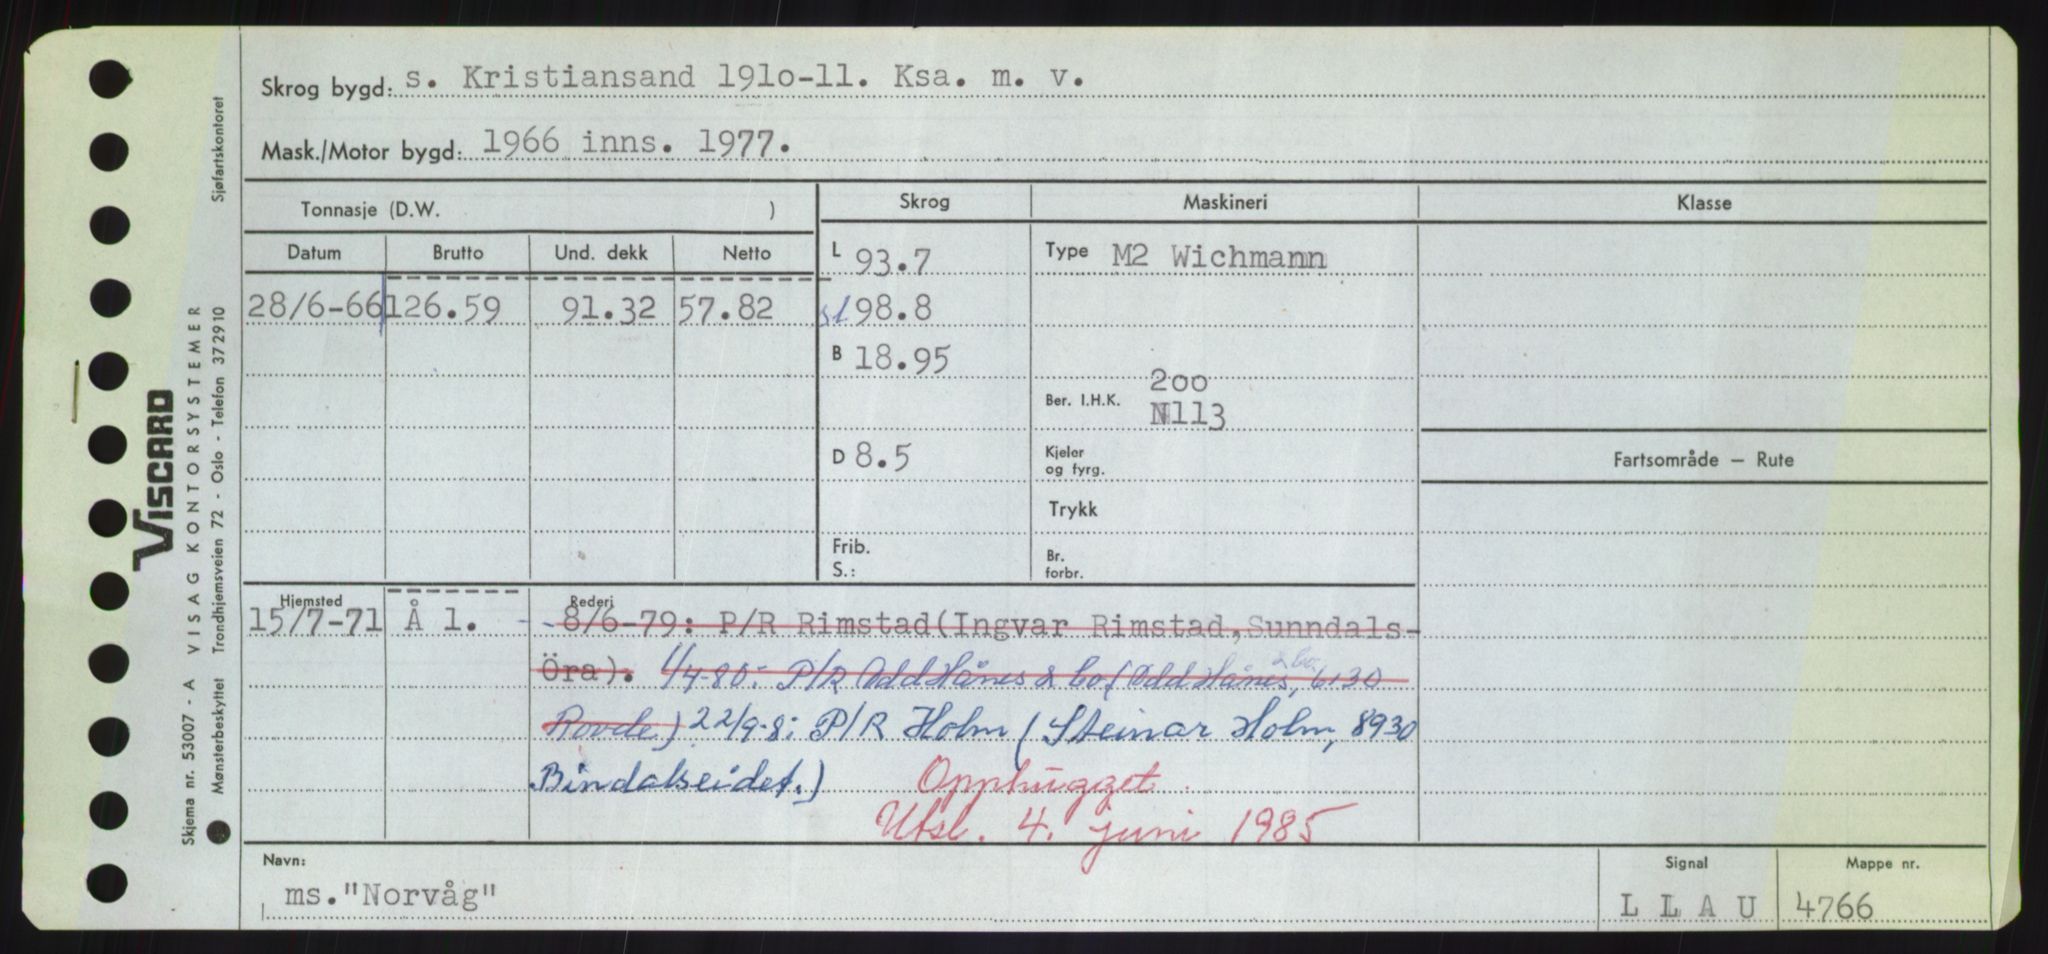 Skrog bygd: s. Kristiansand 191o-11. Ksa. m. v.
Mask./Motor bygd: 1966 inns. 1977.
Tonnasje (D.W. )
Skrog
Maskineri
Klasse
Datum
Brutto
Und. dekk
Netto
L 93.7
Type M2 Wichmann
28/6-66
126.59
91.32
57.82
98.8
B 18.95
Ber. I.H.K.
2oo
N113
D 8.5
Kjeler
og fyrg.
Fartsområde — Rute
Trykk
Frib.
S.:
Br.
forbr.
Hjemsted
Rederi
15/7-71
Å l.
- 8/6-79: P/R Rimstad(Ingvar Rimstad,Sunndals-
Öra). 1/4-80: P/R Odd Hånes & Co, (Odd Hånes & Co, 6130
Rovde) 22/9-8: P/R Holm (Steinar Holm, 8930
Bindalseidet.) Opphugget
Utsl. 4. juni 1985
Navn:
ms."Norvåg"
Signal
L L A U
Mappe nr.
4766
VISCARD
Skjema nr. 53007 - A VISAG KONTORSYSTEMER
Mønsterbeskyttet Trondhjemsveien 72 - Oslo - Telefon 372910 Sjøfartskontoret